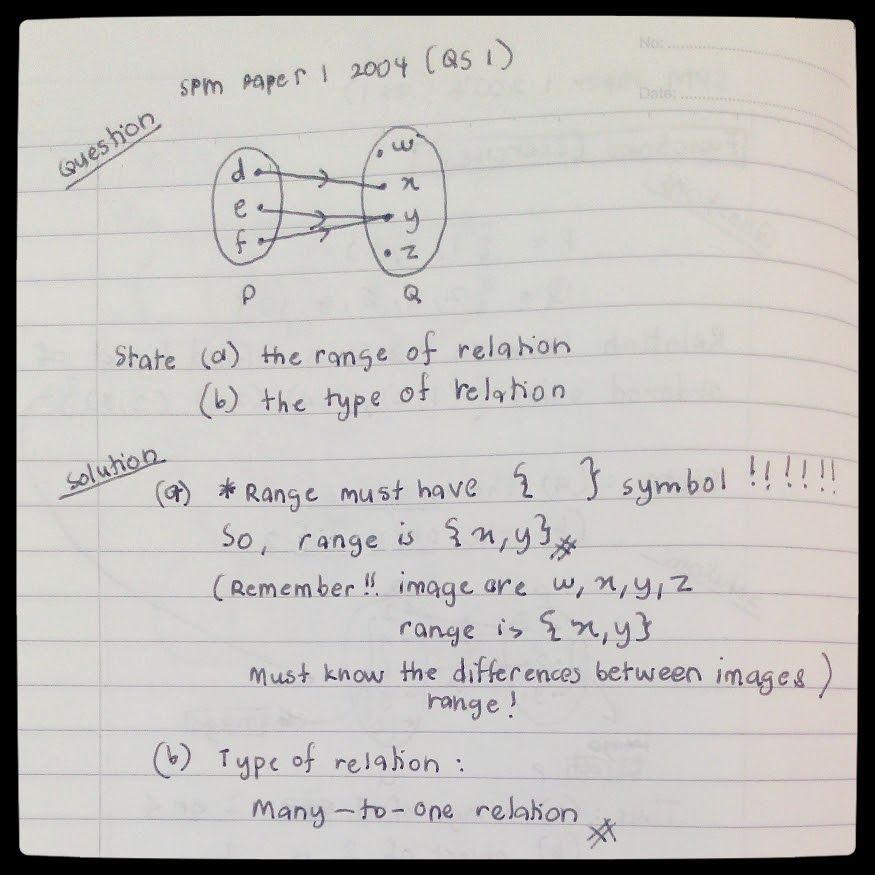 No: ....................
Date: ....................
SPM Paper 1 2004 (QS 1)
Question
d
e
f
w
x
y
z
P
Q
State (a) the range of relation
(b) the type of relation
Solution
(a) * Range must have { } symbol !!!!!!
So, range is {x,y}
(Remember!! image are w, x, y, z
range is {x,y}
Must know the differences between images )
range!
(b) Type of relation :
Many-to-one relation